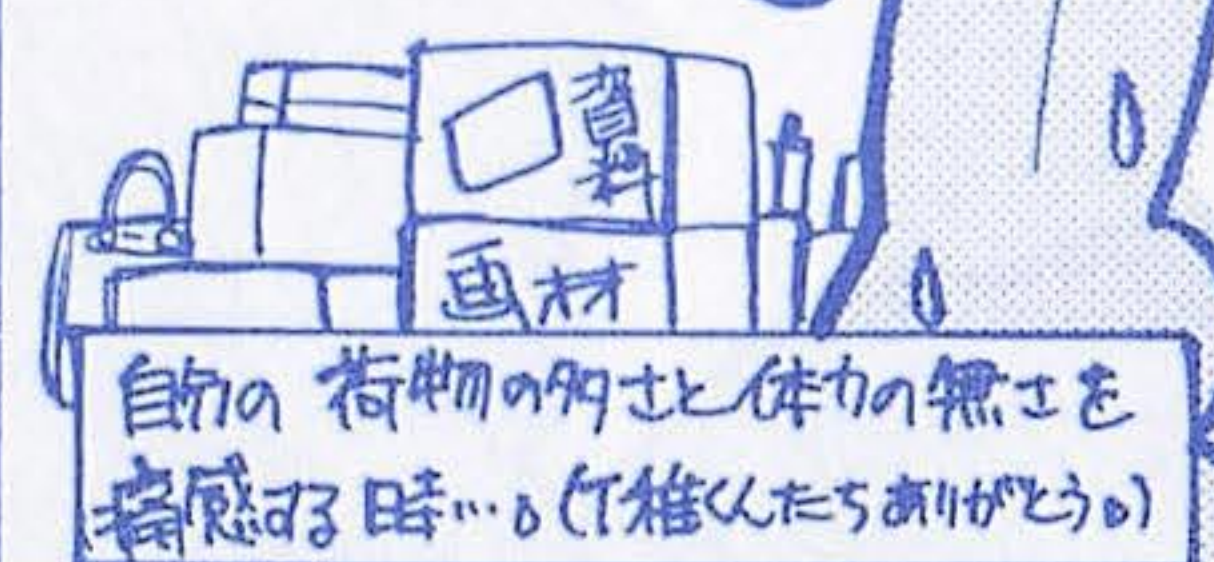 資料
画材
自分の荷物の多さと体力の無さを
痛感する時…。(丁稚くんたちありがとう。)